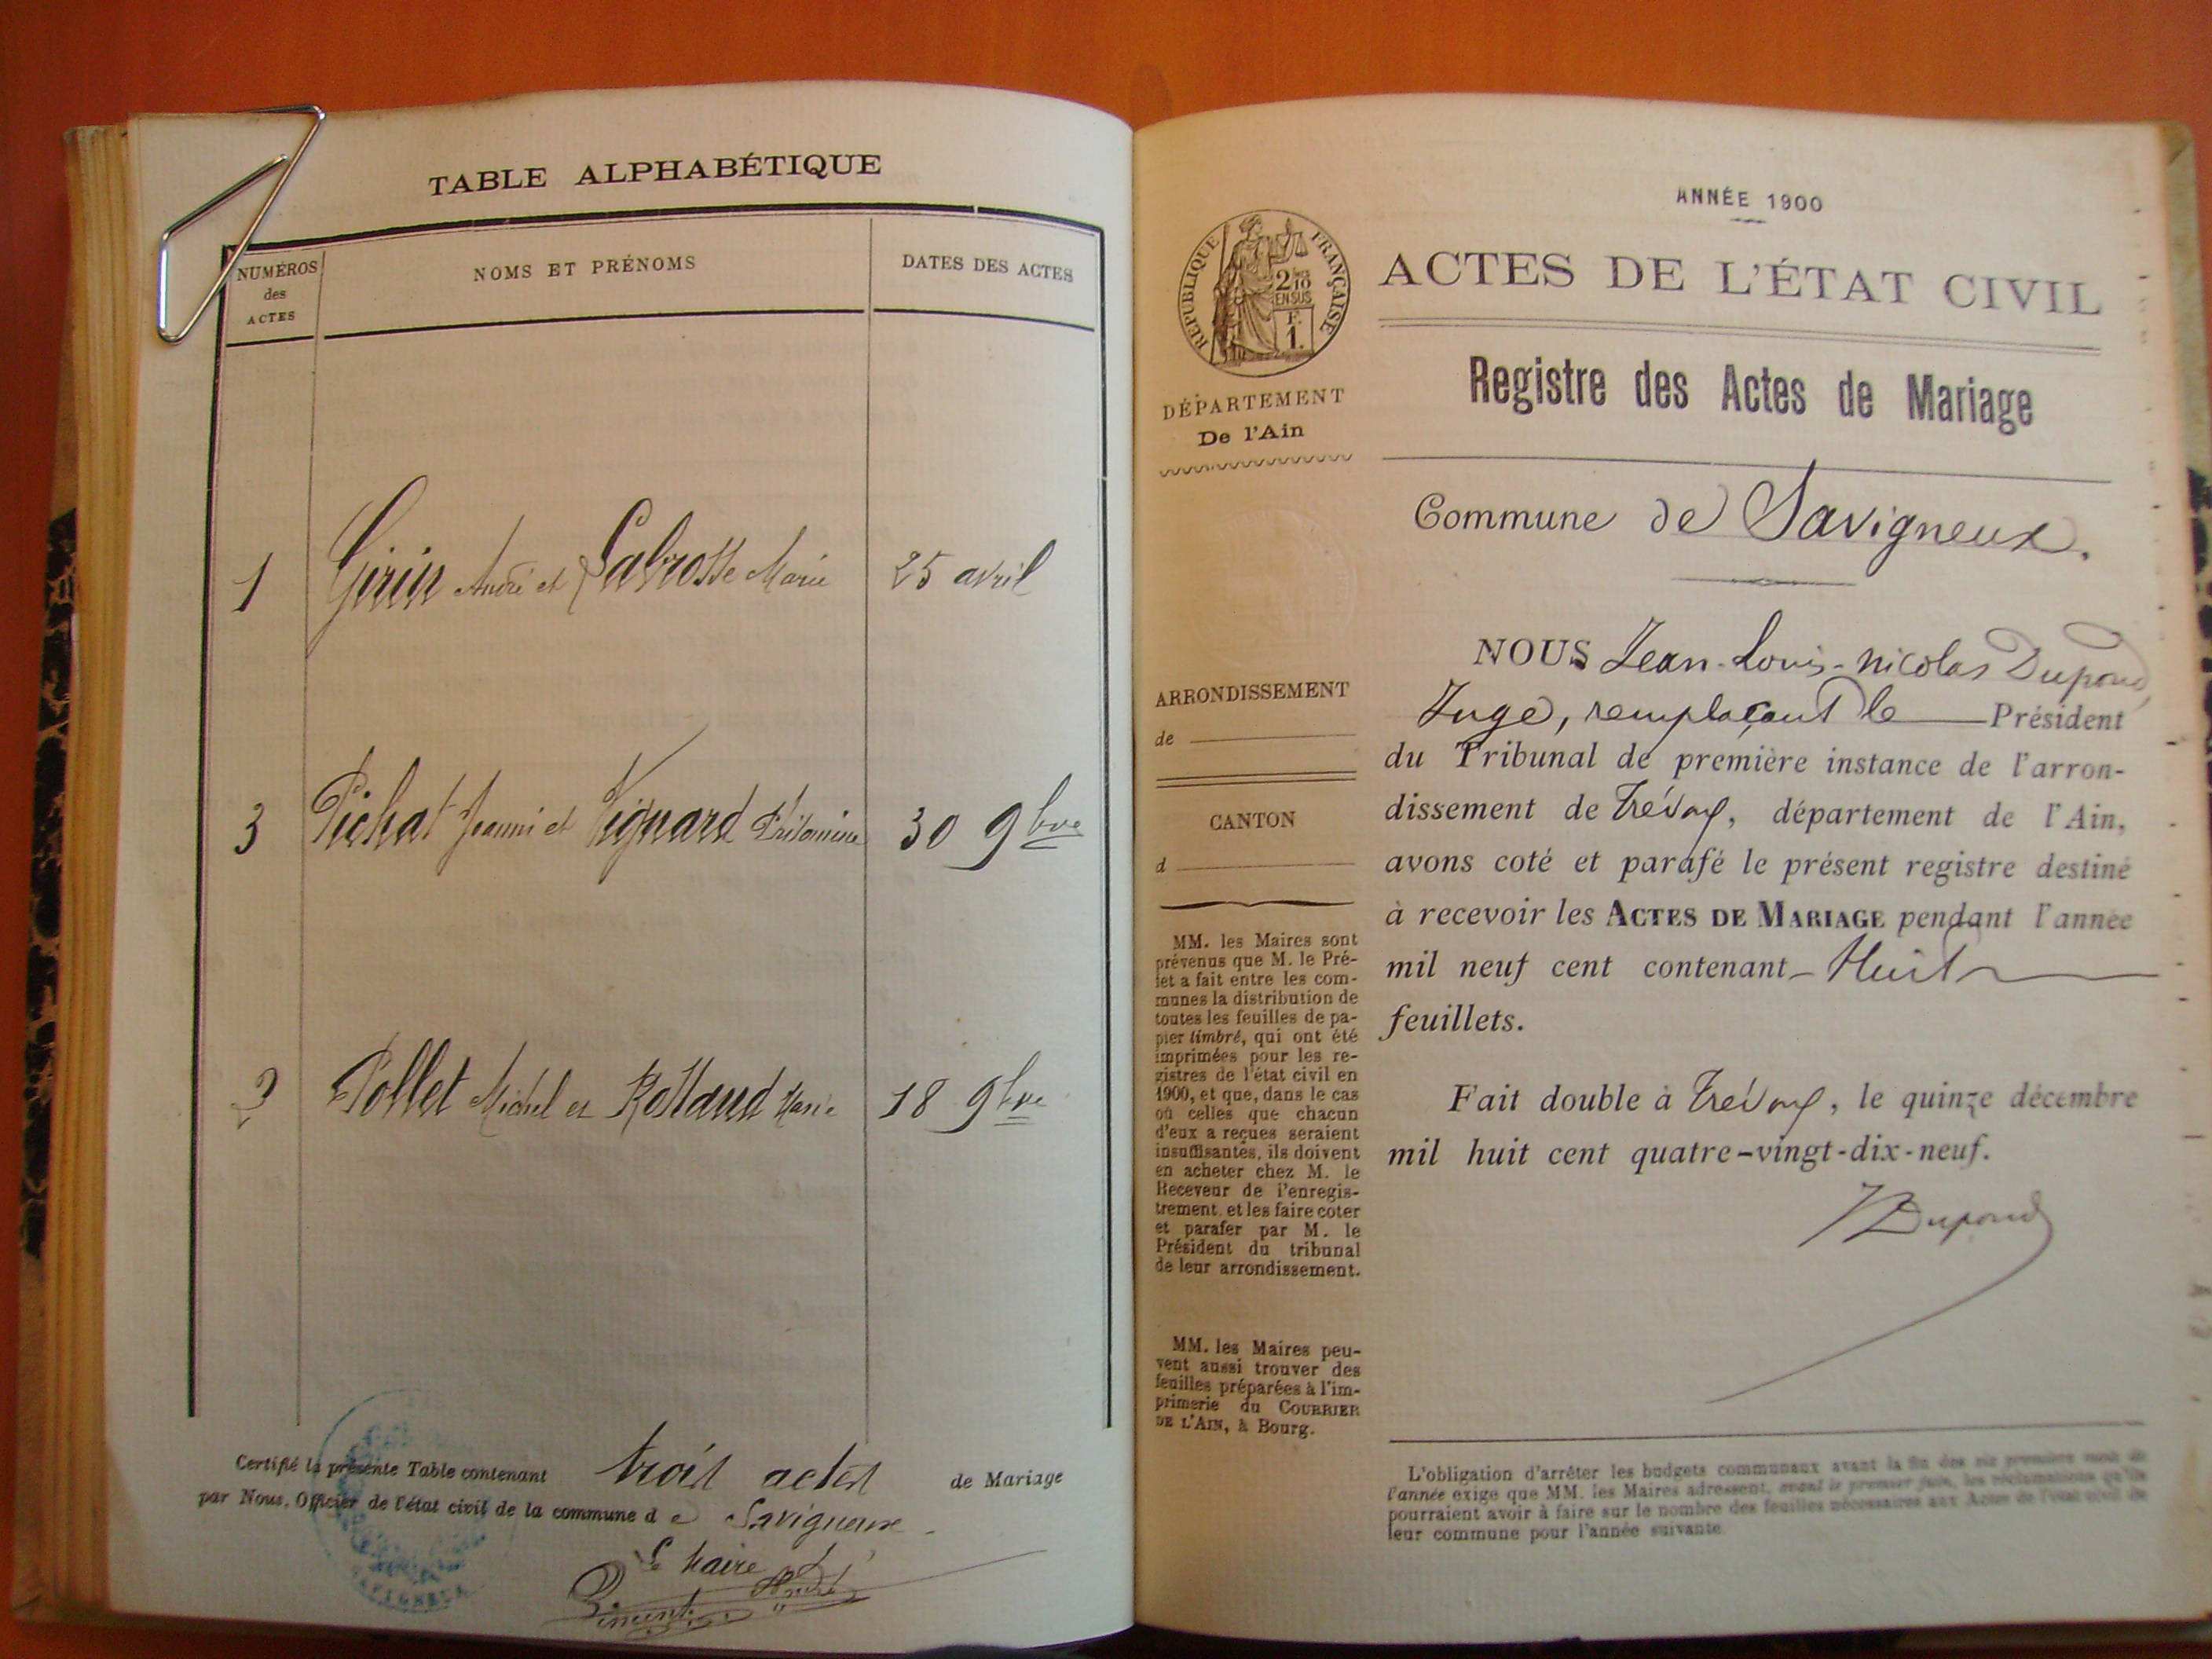 TABLE ALPHABÉTIQUE
NUMÉROS
des
ACTES
NOMS ET PRÉNOMS
DATES DES ACTES
1 Girin André et Labrosse Marie 25 avril
3 Pichat Jeanni et Vignard Philomine 30 9bre
2 Pollet Michel et Rolland Marie 18 9bre
Certifié la présente Table contenant trois actes de Mariage
par Nous, Officier de l'état civil de la commune d e Savigneux
Le Maire
ANNÉE 1900
RÉPUBLIQUE FRANÇAISE
2/10
EN SUS
F.
1.
ACTES DE L'ÉTAT CIVIL
DÉPARTEMENT
De l'Ain
Registre des Actes de Mariage
Commune de Savigneux.
ARRONDISSEMENT
de
CANTON
d
MM. les Maires sont
prévenus que M. le Pré-
fet a fait entre les com-
munes la distribution de
toutes les feuilles de pa-
pier timbré, qui ont été
imprimées pour les re-
gistres de l'état civil en
1900, et que, dans le cas
où celles que chacun
d'eux a reçues seraient
insuffisantes, ils doivent
en acheter chez M. le
Receveur de l'enregis-
trement et les faire coter
et parafer par M. le
Président du tribunal
de leur arrondissement.
MM. les Maires peu-
vent aussi trouver des
feuilles préparées à l'im-
primerie du COURRIER
DE L'AIN, à Bourg.
NOUS Jean-Louis-Nicolas Dupond,
Juge, remplaçant le Président
du Tribunal de première instance de l'arron-
dissement de Trévoux, département de l'Ain,
avons coté et parafé le présent registre destiné
à recevoir les ACTES DE MARIAGE pendant l'année
mil neuf cent contenant Huit
feuillets.
Fait double à Trévoux, le quinze décembre
mil huit cent quatre-vingt-dix-neuf.
Dupond
L'obligation d'arrêter les budgets communaux avant la fin des six premiers mois de
l'année exige que MM. les Maires adressent, avant le premier juin, les réclamations qu'ils
pourraient avoir à faire sur le nombre des feuilles nécessaires aux Actes de l'état civil de
leur commune pour l'année suivante.